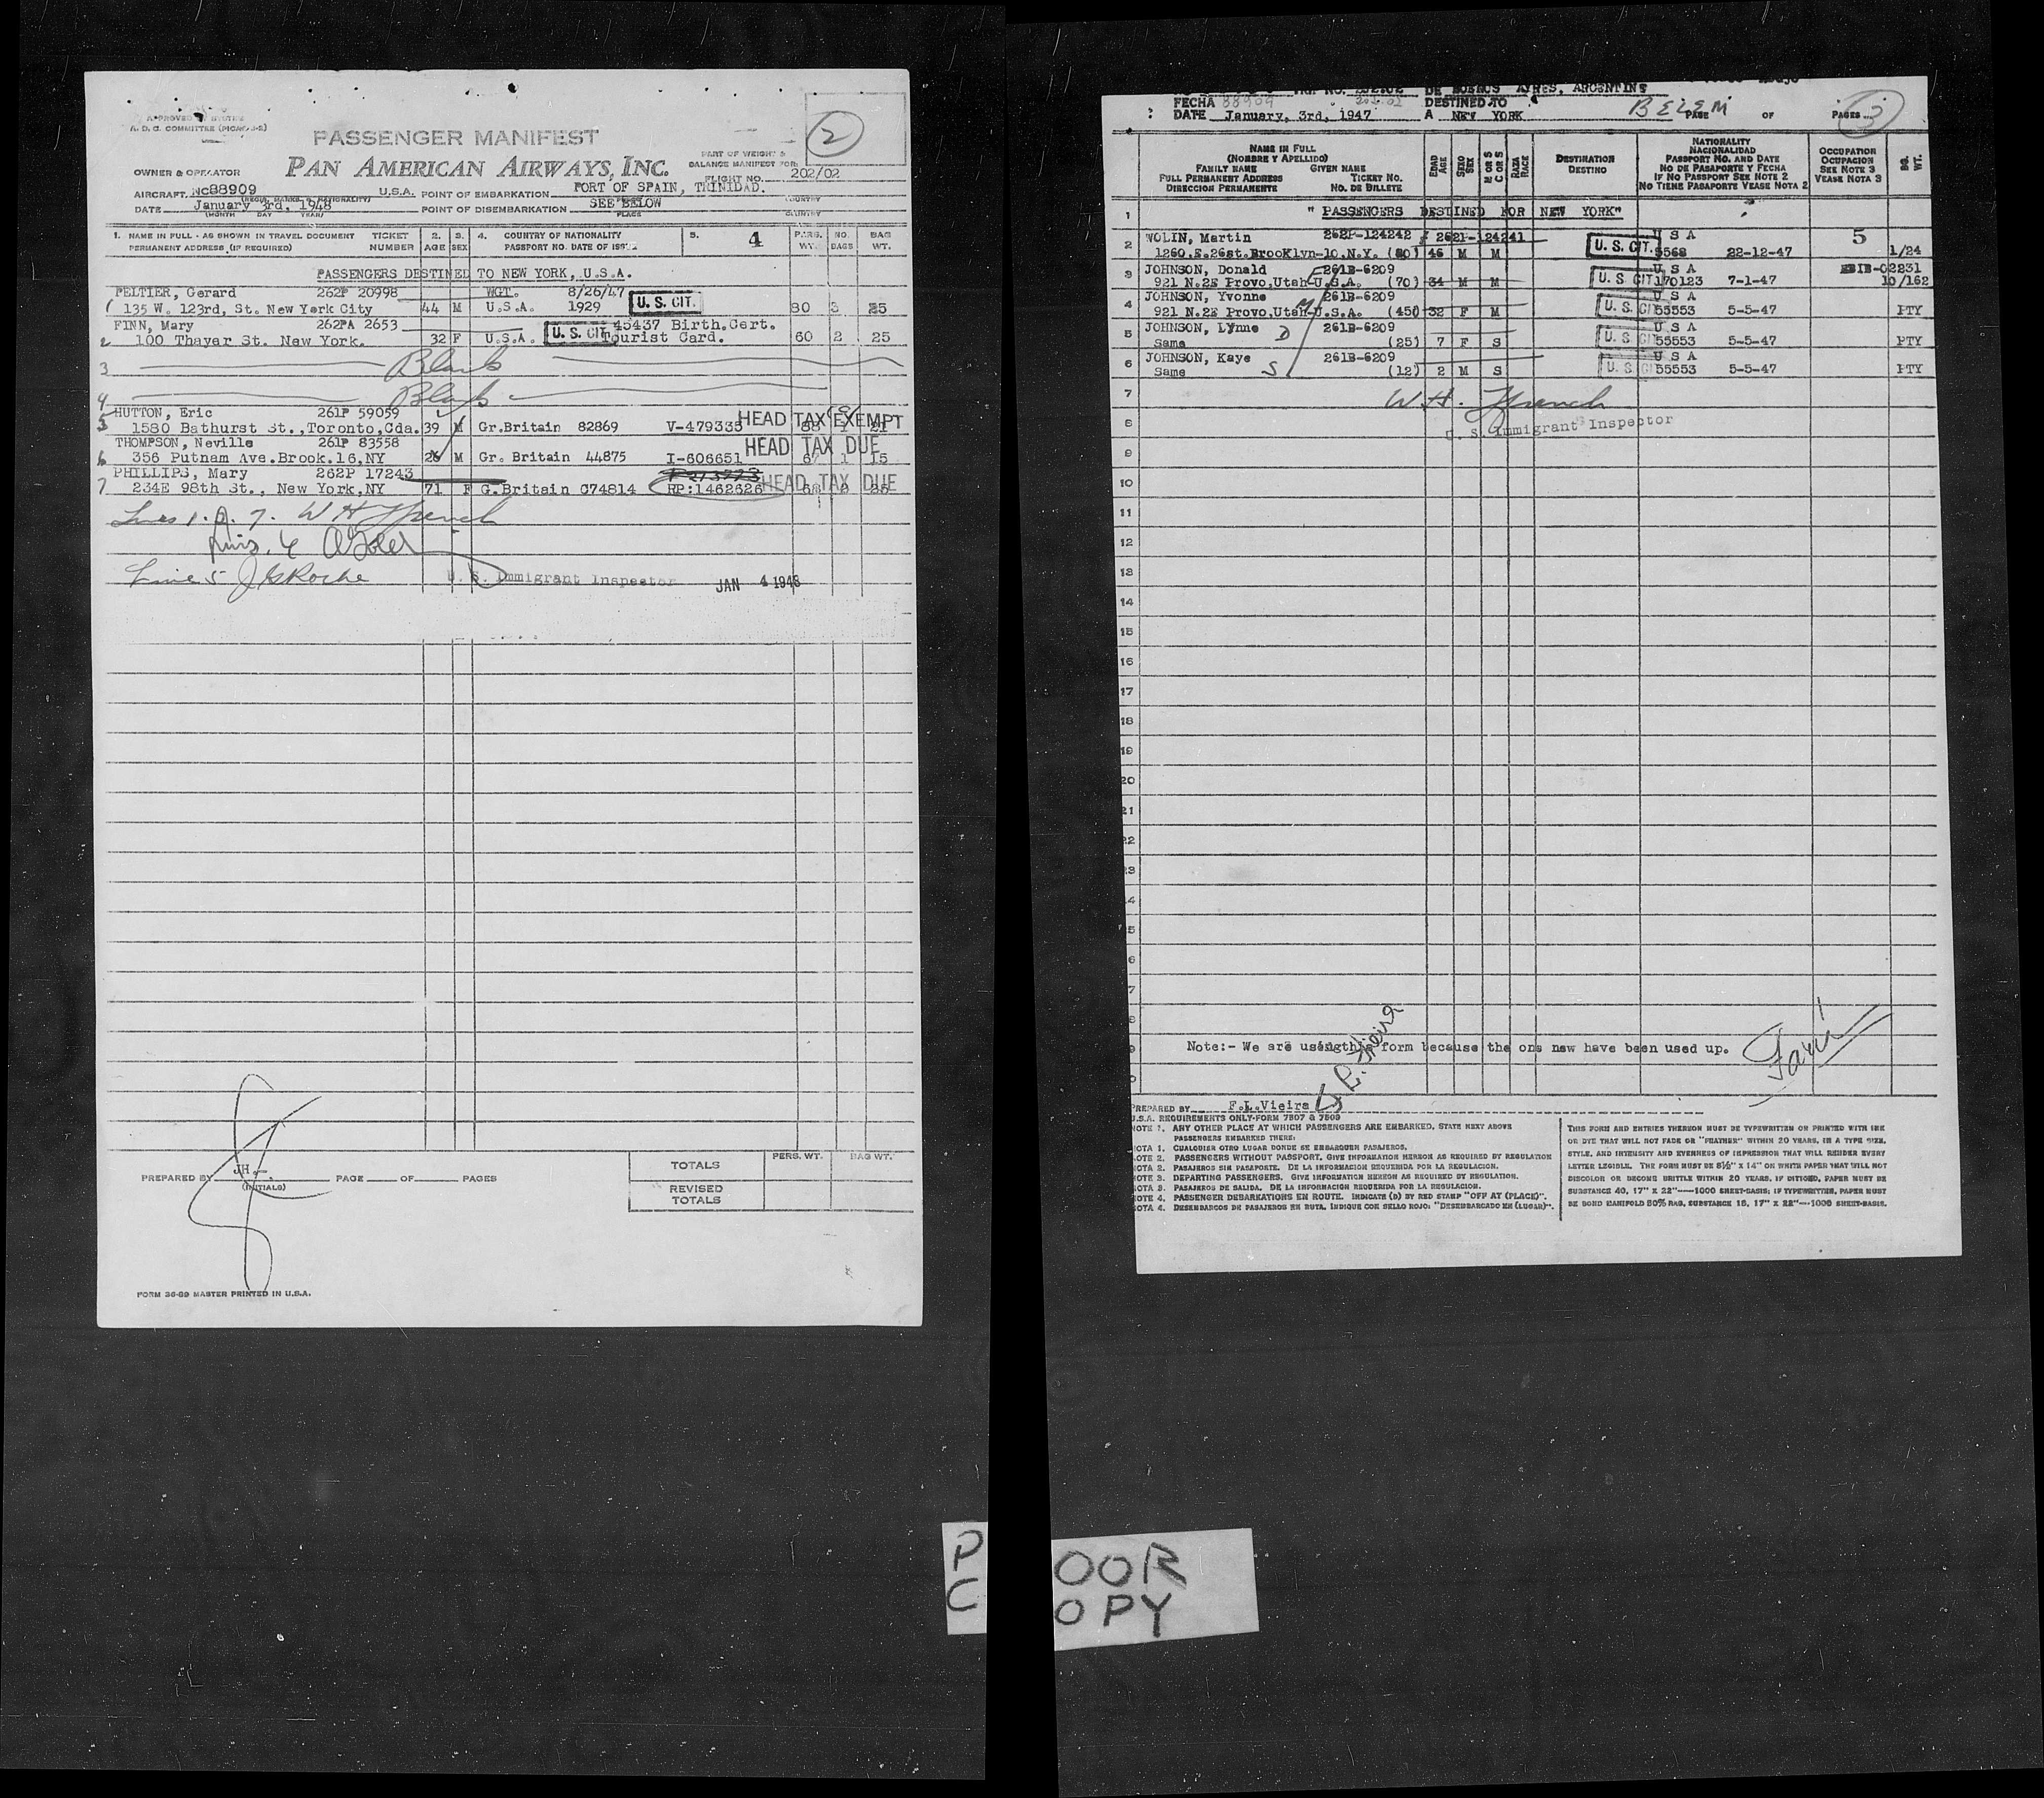 PASSENGER MANIFEST
PAN AMERICAN AIRWAYS, INC.
2
A. D. C. COMMITTEE
PART OF WEIGHT &
BALANCE MANIFEST FOR
FLIGHT NO. 202/02
OWNER & OPERATOR
AIRCRAFT NC88909 U.S.A. POINT OF EMBARKATION PORT OF SPAIN, TRINIDAD.
DATE January 3rd, 1948 POINT OF DISEMBARKATION SEE BELOW
(MONTH DAY YEAR) PLACE COUNTRY
1. NAME IN FULL - AS SHOWN IN TRAVEL DOCUMENT TICKET 2. 3. 4. COUNTRY OF NATIONALITY 5. 4 NO. BAG
PERMANENT ADDRESS (IF REQUIRED) NUMBER AGE SEX PASSPORT NO. DATE OF WT. BAGS WT.
PASSENGERS DESTINED TO NEW YORK, U.S.A.
PELTIER, Gerard 262P 20998 WGT. 8/26/47
1 135 W. 123rd, St. New York City 44 M U.S.A. 1929 U. S. CIT. 80 3
FINN, Mary 262PA 2653 45437 Birth.Cert.
2 100 Thayer St. New York. 32 F U.S.A. U. S. CIT. Tourist Card. 60 2 25
3 Blank
4 Blank
HUTTON, Eric 261P 59059 HEAD TAX EXEMPT
5 1580 Bathurst St.,Toronto,Cda. 39 M Gr.Britain 82869 V-479335 21
THOMPSON, Neville 261P 83558 HEAD TAX DUE
6 356 Putnam Ave.Brook.16,NY 26 M Gr. Britain 44875 I-606651 1 15
PHILLIPS, Mary 262P 17243 HEAD TAX DUE
7 234E 98th St., New York,NY 71 F G.Britain C74814 RP:1462626
Lines 1. 2. 7. W H French
Line 5 J G Roche
U. S. Immigrant Inspector JAN 4 1948
PREPARED BY JH PAGE OF PAGES
(INITIALS)
TOTALS PERS. WT. BAG WT.
REVISED
TOTALS
FORM 36-89 MASTER PRINTED IN U.S.A.
DE BUENOS AYRES, ARGENTINE
FECHA 88909 DESTINED TO BELEM 3
DATE January, 3rd, 1947 A NEW YORK PAGE OF PAGES
NAME IN FULL
(NOMBRE Y APELLIDO)
FAMILY NAME GIVEN NAME
FULL PERMANENT ADDRESS TICKET NO.
DIRECCION PERMANENTE NO. DE BILLETE
EDAD AGE
SEXO SEX
M OR S
C OR S
RAZA RACE
DESTINATION
DESTINO
NATIONALITY
NACIONALIDAD
PASSPORT NO. AND DATE
NO DE PASAPORTE Y FECHA
IF NO PASSPORT SEE NOTE 2
NO TIENE PASAPORTE VEASE NOTA 2
OCCUPATION
OCUPACION
SEE NOTE 3
VEASE NOTA 3
BG. WT.
1 " PASSENGERS DESTINED FOR NEW YORK"
WOLIN, Martin 262P-124242 262P-124241 U S A 5
2 1260.E.26st.BrooKlyn-10.N.Y. (80) 46 M M U. S. CIT. 5568 22-12-47 1/24
3 JOHNSON, Donald 261B-6209 U S A
921 N.2E Provo,Utah-U.S.A. (70) 34 M M U. S. CIT. 170123 7-1-47 10/162
4 JOHNSON, Yvonne 261B-6209 U S A
921 N.2E Provo,Utah-U.S.A. (45) 32 F M U. S. CIT. 55553 5-5-47 PTY
5 JOHNSON, Lynne D 261B-6209 U S A
Same (25) 7 F S U. S. CIT. 55553 5-5-47 PTY
6 JOHNSON, Kaye S 261B-6209 U S A
Same (12) 2 M S U. S. CIT. 55553 5-5-47 PTY
7 W H. French
8 U. S. Immigrant Inspector
9
10
11
12
13
14
15
16
17
18
19
20
21
22
Note:- We are using this form because the ons new have been used up.
PREPARED BY F.L.Vieira
U.S.A. REQUIREMENTS ONLY-FORM 7507 & 7509
NOTE 1. ANY OTHER PLACE AT WHICH PASSENGERS ARE EMBARKED, STATE NEXT ABOVE
PASSENGERS EMBARKED THERE:
NOTA 1. CUALQUIER OTRO LUGAR DONDE SE EMBARQUEN PASAJEROS.
NOTE 2. PASSENGERS WITHOUT PASSPORT. GIVE INFORMATION HEREON AS REQUIRED BY REGULATION
NOTA 2. PASAJEROS SIN PASAPORTE. DE LA INFORMACION REQUERIDA POR LA REGULACION.
NOTE 3. DEPARTING PASSENGERS. GIVE INFORMATION HEREON AS REQUIRED BY REGULATION.
NOTA 3. PASAJEROS DE SALIDA. DE LA INFORMACION REQUERIDA POR LA REGULACION.
NOTE 4. PASSENGER DEBARKATIONS EN ROUTE. INDICATE (D) BY RED STAMP "OFF AT (PLACE)".
NOTA 4. DESEMBARCOS DE PASAJEROS EN RUTA. INDIQUE CON SELLO ROJO: "DESEMBARCADO EN (LUGAR)".
THIS FORM AND ENTRIES THEREON MUST BE TYPEWRITTEN OR PRINTED WITH INK
OR DYE THAT WILL NOT FADE OR "FEATHER" WITHIN 20 YEARS, IN A TYPE SIZE,
STYLE, AND INTENSITY AND EVENNESS OF IMPRESSION THAT WILL RENDER EVERY
LETTER LEGIBLE. THE FORM MUST BE 8½" X 14" ON WHITE PAPER THAT WILL NOT
DISCOLOR OR BECOME BRITTLE WITHIN 20 YEARS. IF DITTOED, PAPER MUST BE
SUBSTANCE 40, 17" X 22"—1000 SHEET-BASIS; IF TYPEWRITTEN, PAPER MUST
BE BOND MANIFOLD 50% RAG, SUBSTANCE 16, 17" X 22"—1000 SHEET-BASIS.
POOR
COPY